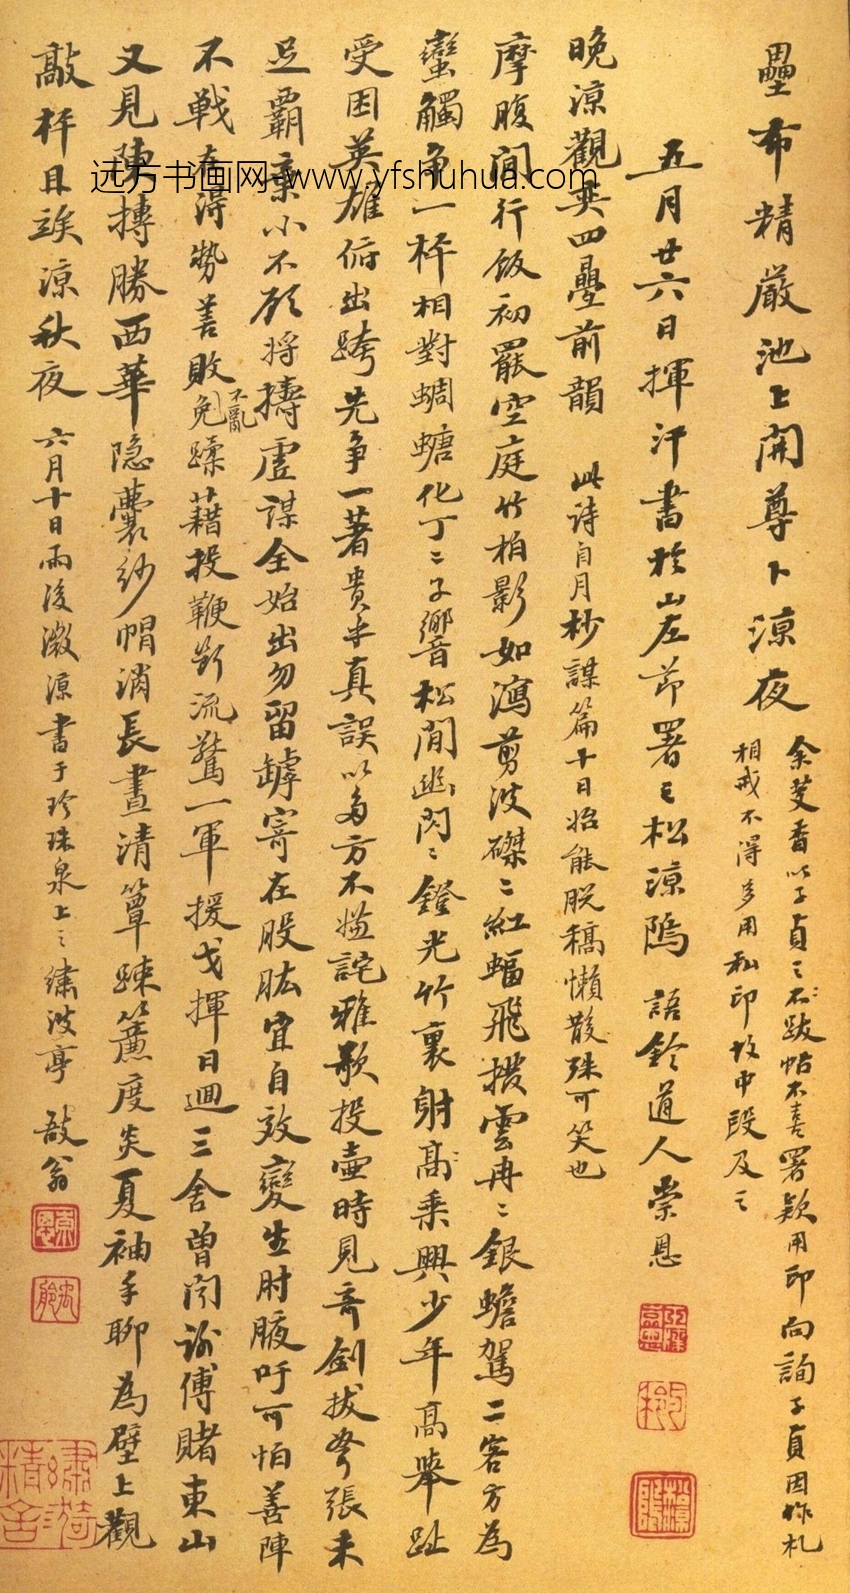 壘布精嚴池上開尊卜涼夜
余芰香以子貞之不跋帖不喜署款用印向詢子貞因作札
相戒不得多用私印故中段及之
五月廿六日揮汗書於山左節署之松涼隝 語鈴道人崇恩
晚涼觀弈四疊前韻 此詩自月杪謀篇十日始能脫稿懶散殊可笑也
摩腹閒行飯初罷空庭竹柏影如瀉剪波磔〻紅蝠飛撥雲冉〻銀蟾駕二客方為
蠻觸爭一枰相對蜩螗化丁〻子響松閒幽閃〻鐙光竹裏射高〻乘興少年高舉趾
受困英雄俯出跨先爭一著貴乎真誤以多方不嫌詫雅歌投壺時見奇劍拔弩張未
足霸棄小不顧將擣虛謀全始出勿留罅寄在股肱宜自效變生肘腋吁可怕善陣
不戰在得勢善敗不亂免蹂藉投鞭斷流驚一軍援戈揮日迴三舍曾聞謝傅賭東山
又見陳摶勝西華隱囊紗帽消長晝清簟踈簾度炎夏袖手聊為壁上觀
敲枰且竢涼秋夜 六月十日雨後澂涼書于珍珠泉上之繡波亭 敔翁
远方书画网-www.yfshuhua.com